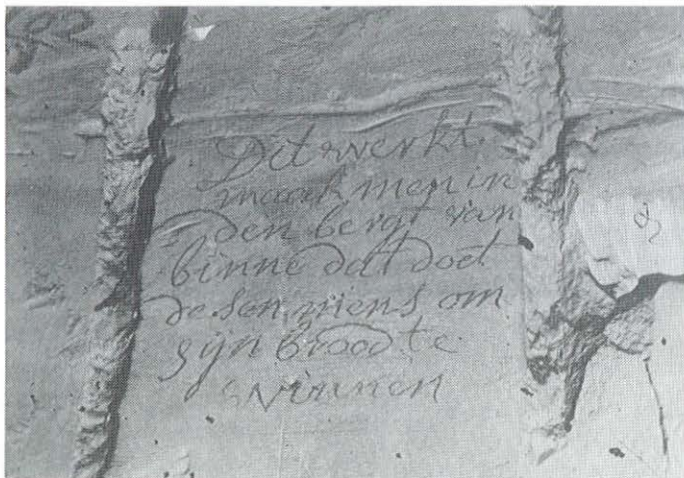 Dit werkt
maack men in
den bergt van
binne dat doet
desen miens om
sijn broodt te
winnen